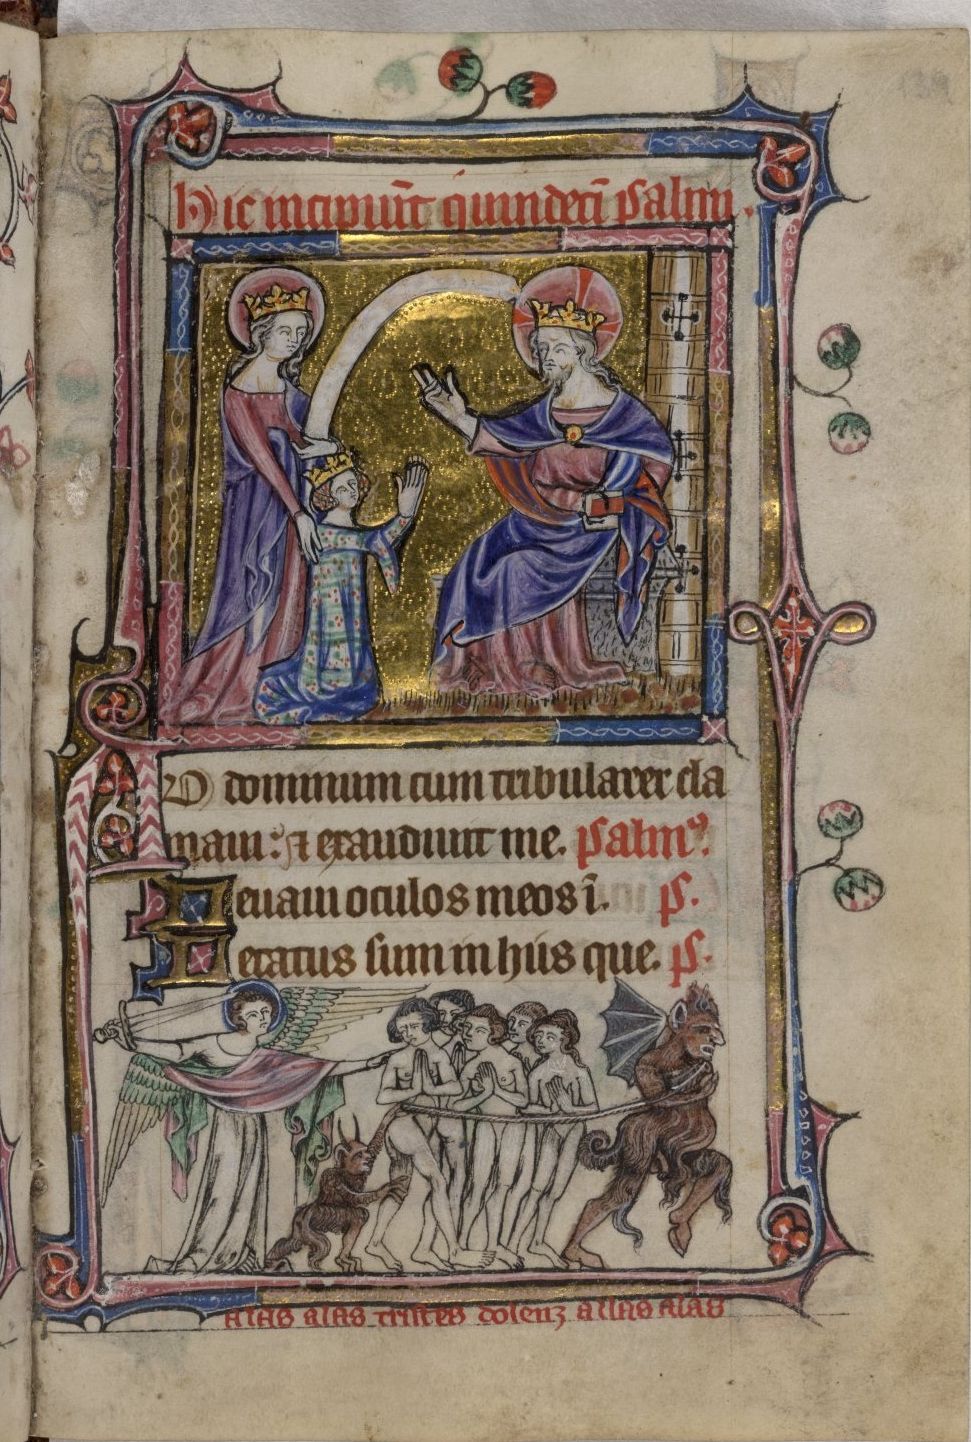 hic incipiūt q́uindecī psalmi.
AD dominum cum tribularer cla
maui: ⁊ exaudiuit me. psalmꝰ.
Leuaui oculos meos ī. ps.
Letatus sum in hiis que. ps.
alas alas tristes dolenz allas alas